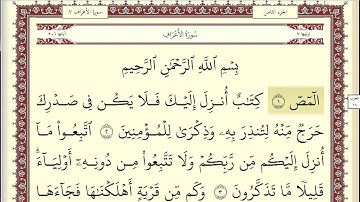 سورة الأعراف ٧
الجزء الثامن
سُورَةُ الأَعْرَافِ
بِسْمِ اللَّهِ الرَّحْمَٰنِ الرَّحِيمِ
الٓمٓصٓ ۝١ كِتَٰبٌ أُنزِلَ إِلَيْكَ فَلَا يَكُن فِي صَدْرِكَ
حَرَجٌ مِّنْهُ لِتُنذِرَ بِهِۦ وَذِكْرَىٰ لِلْمُؤْمِنِينَ ۝٢ ٱتَّبِعُوا۟ مَآ
أُنزِلَ إِلَيْكُم مِّن رَّبِّكُمْ وَلَا تَتَّبِعُوا۟ مِن دُونِهِۦٓ أَوْلِيَآءَ ۗ
قَلِيلًا مَّا تَذَكَّرُونَ ۝٣ وَكَم مِّن قَرْيَةٍ أَهْلَكْنَٰهَا فَجَآءَهَا